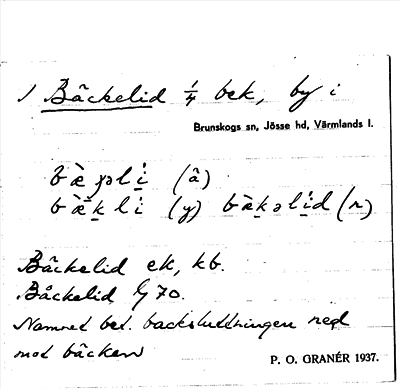 1 Bäckelid 1/4 bek, by i
Brunskogs sn, Jösse hd, Värmlands l.
bæ̀ḵəli̱ (ä)
bæ̀ḵli (y) bæ̀ḵəli̱d (n)
Bäckelid ek, kb.
Bäckelid Lj 70.
Namnet bet. backsluttningen ned
mot bäcken
P. O. GRANÉR 1937.